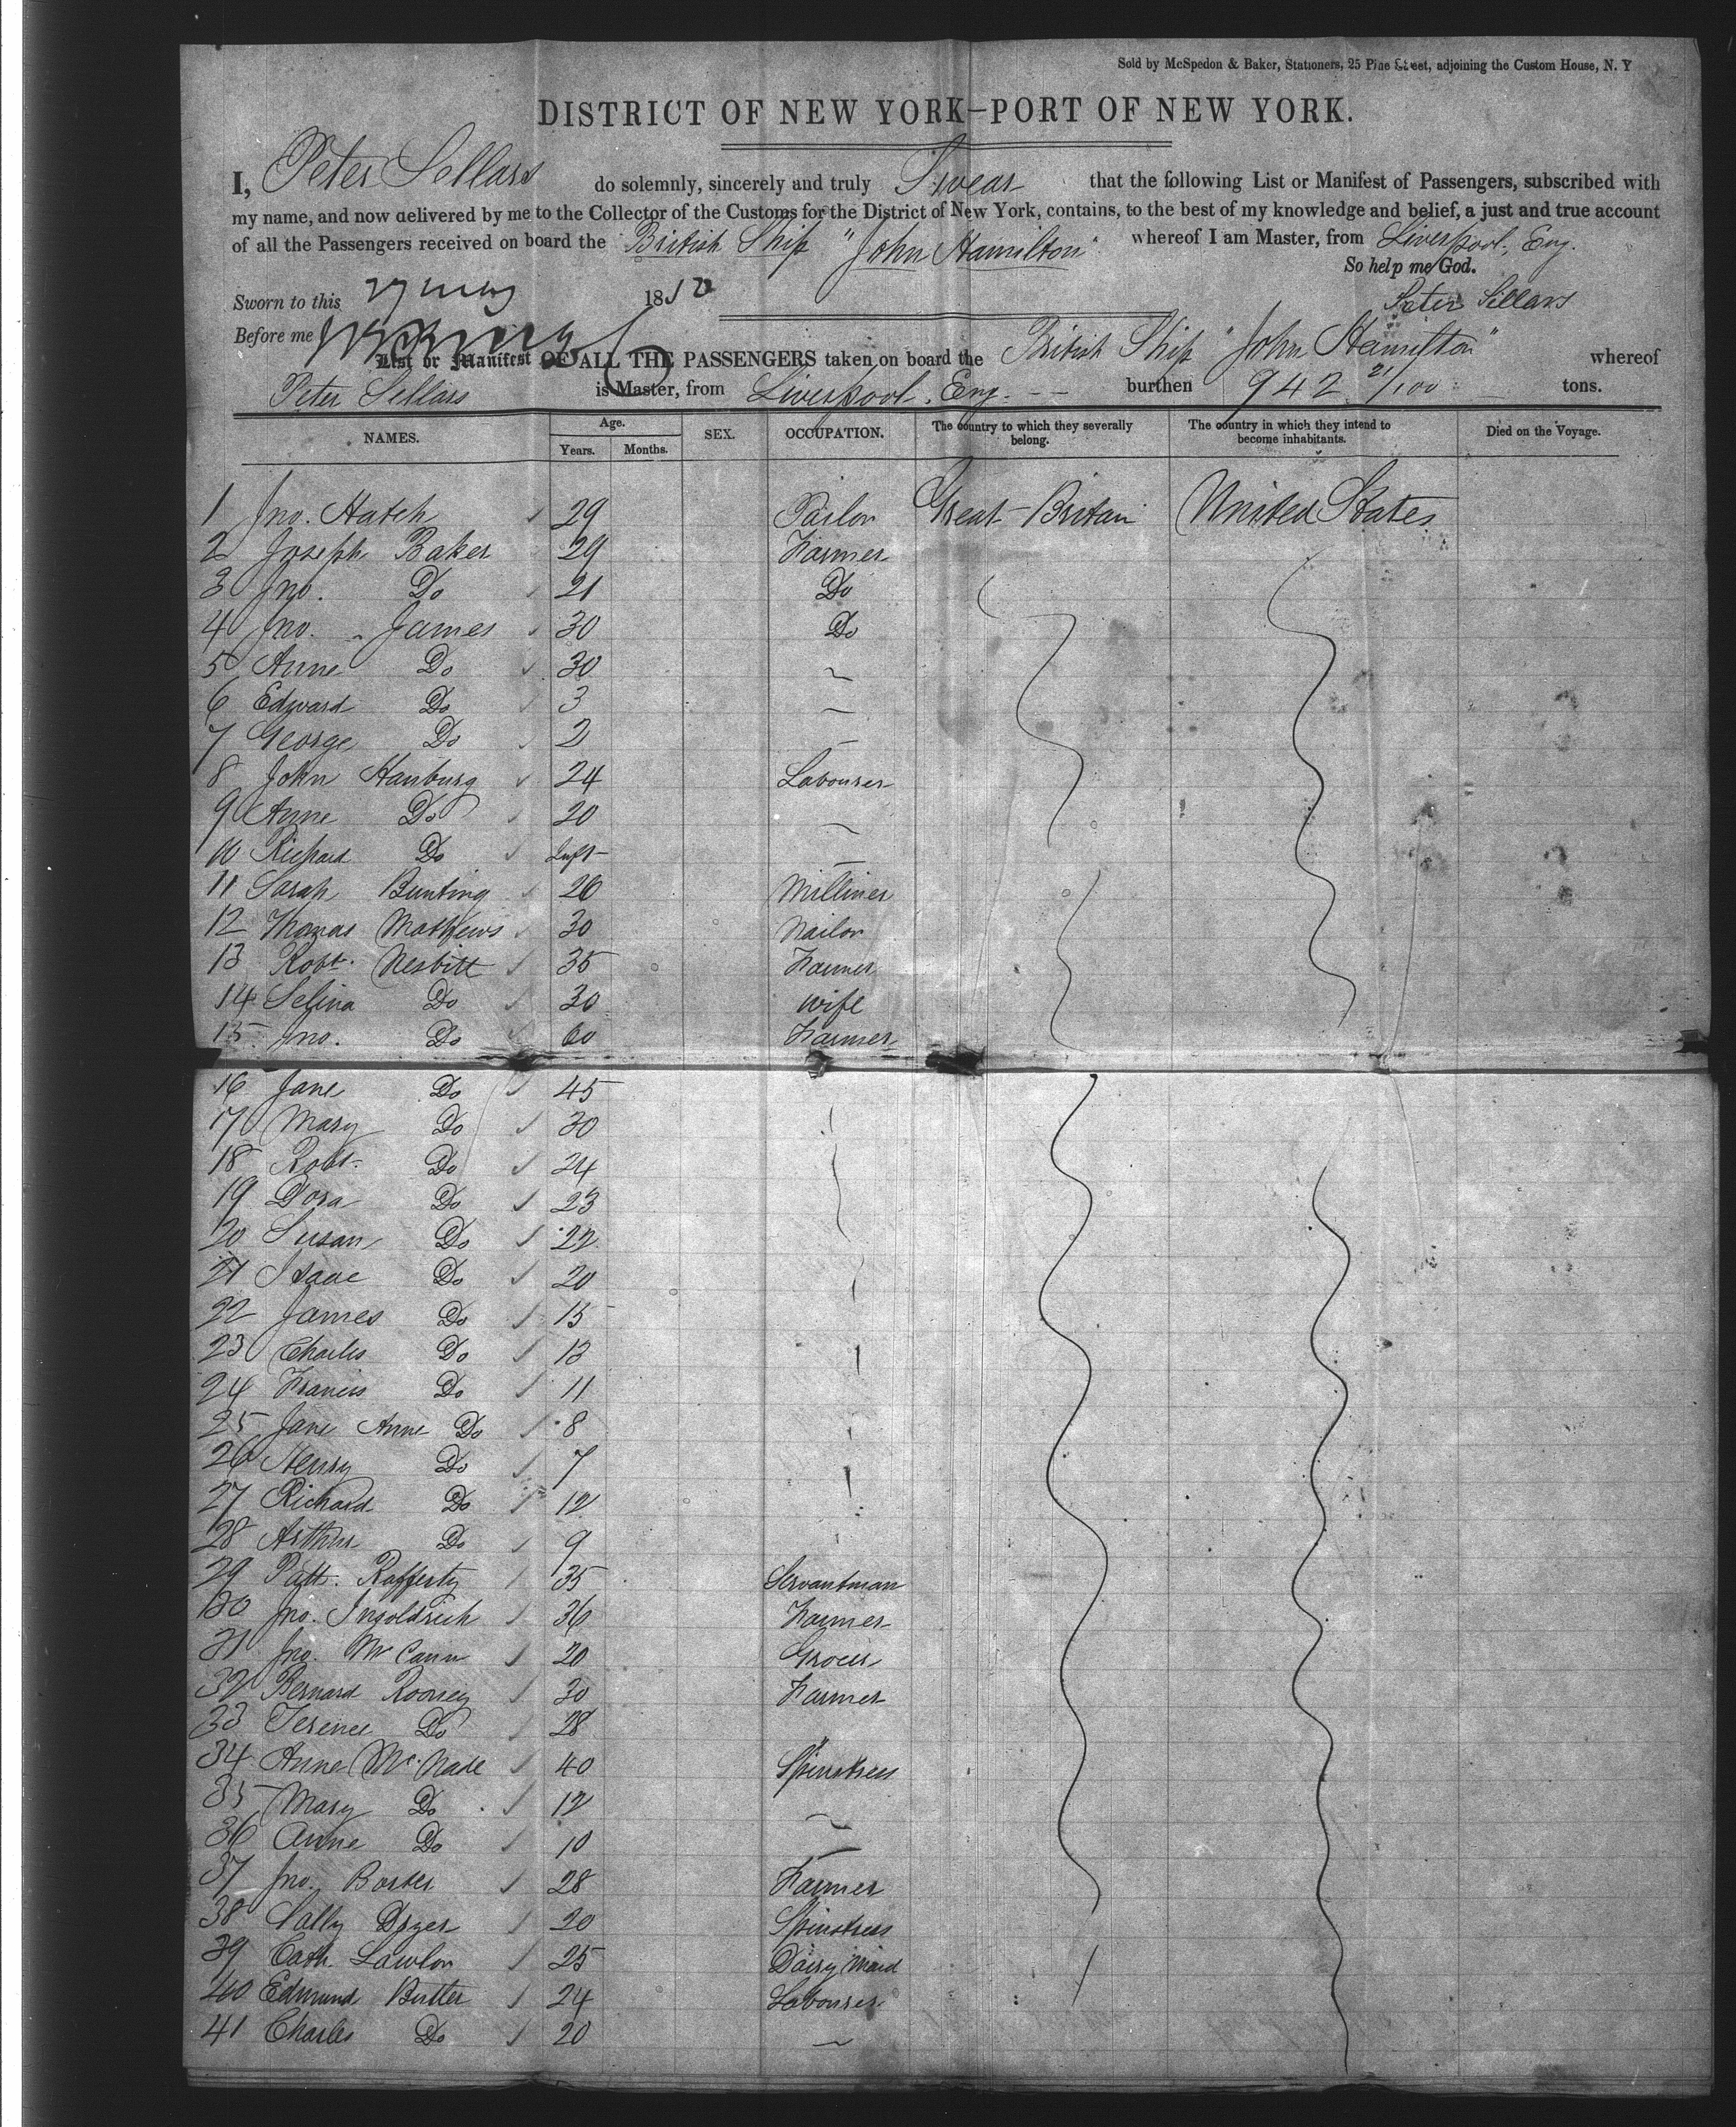 Sold by McSpedon & Baker, Stationers, 25 Pine Street, adjoining the Custom House, N. Y
DISTRICT OF NEW YORK—PORT OF NEW YORK.
I, Peter Sellars do solemnly, sincerely and truly Swear that the following List or Manifest of Passengers, subscribed with
my name, and now delivered by me to the Collector of the Customs for the District of New York, contains, to the best of my knowledge and belief, a just and true account
of all the Passengers received on board the British Ship "John Hamilton" whereof I am Master, from Liverpool, Eng.
So help me God.
Sworn to this 27 may 185 Peter Sellars
Before me
List or Manifest OF ALL THE PASSENGERS taken on board the British Ship "John Hamilton" whereof
Peter Sellars is Master, from Liverpool, Eng. burthen 942 21/100 tons.
NAMES. Age. Years. Months. SEX. OCCUPATION. The country to which they severally belong. The country in which they intend to become inhabitants. Died on the Voyage.
1 Jno. Hatch 29 Tailor Great Britain United States
2 Joseph Baker 29 Farmer
3 Jno. Do 21 Do
4 Jno. James 30 Do
5 Anne Do 30
6 Edward Do 3
7 George Do 2
8 John Hanburg 24 Labourer
9 Anne Do 20
10 Richard Do Inft
11 Sarah Bunting 26 Milliner
12 Thomas Mathews 30 Nailor
13 Robt. Nesbitt 35 Farmer
14 Selina Do 30 wife
15 Jno. Do 60 Farmer
16 Jane Do 45
17 Mary Do 30
18 Robt. Do 24
19 Dora Do 23
20 Susan Do 22
21 Isaac Do 20
22 James Do 15
23 Charles Do 13
24 Francis Do 11
25 Jane Anne Do 8
26 Henry Do 7
27 Richard Do 12
28 Arthur Do 9
29 Patt. Rafferty 35 Servantman
30 Jno. Ingoldrich 36 Farmer
31 Jno. McCann 20 Grocer
32 Bernard Rooney 30 Farmer
33 Terence Do 28
34 Anne McNade 40 Spinstress
35 Mary Do 12
36 Anne Do 10
37 Jno. Barker 28 Farmer
38 Sally Dwyer 20 Spinstress
39 Cath. Lawlor 25 Dairy Maid
40 Edmund Butler 24 Labourer
41 Charles Do 20